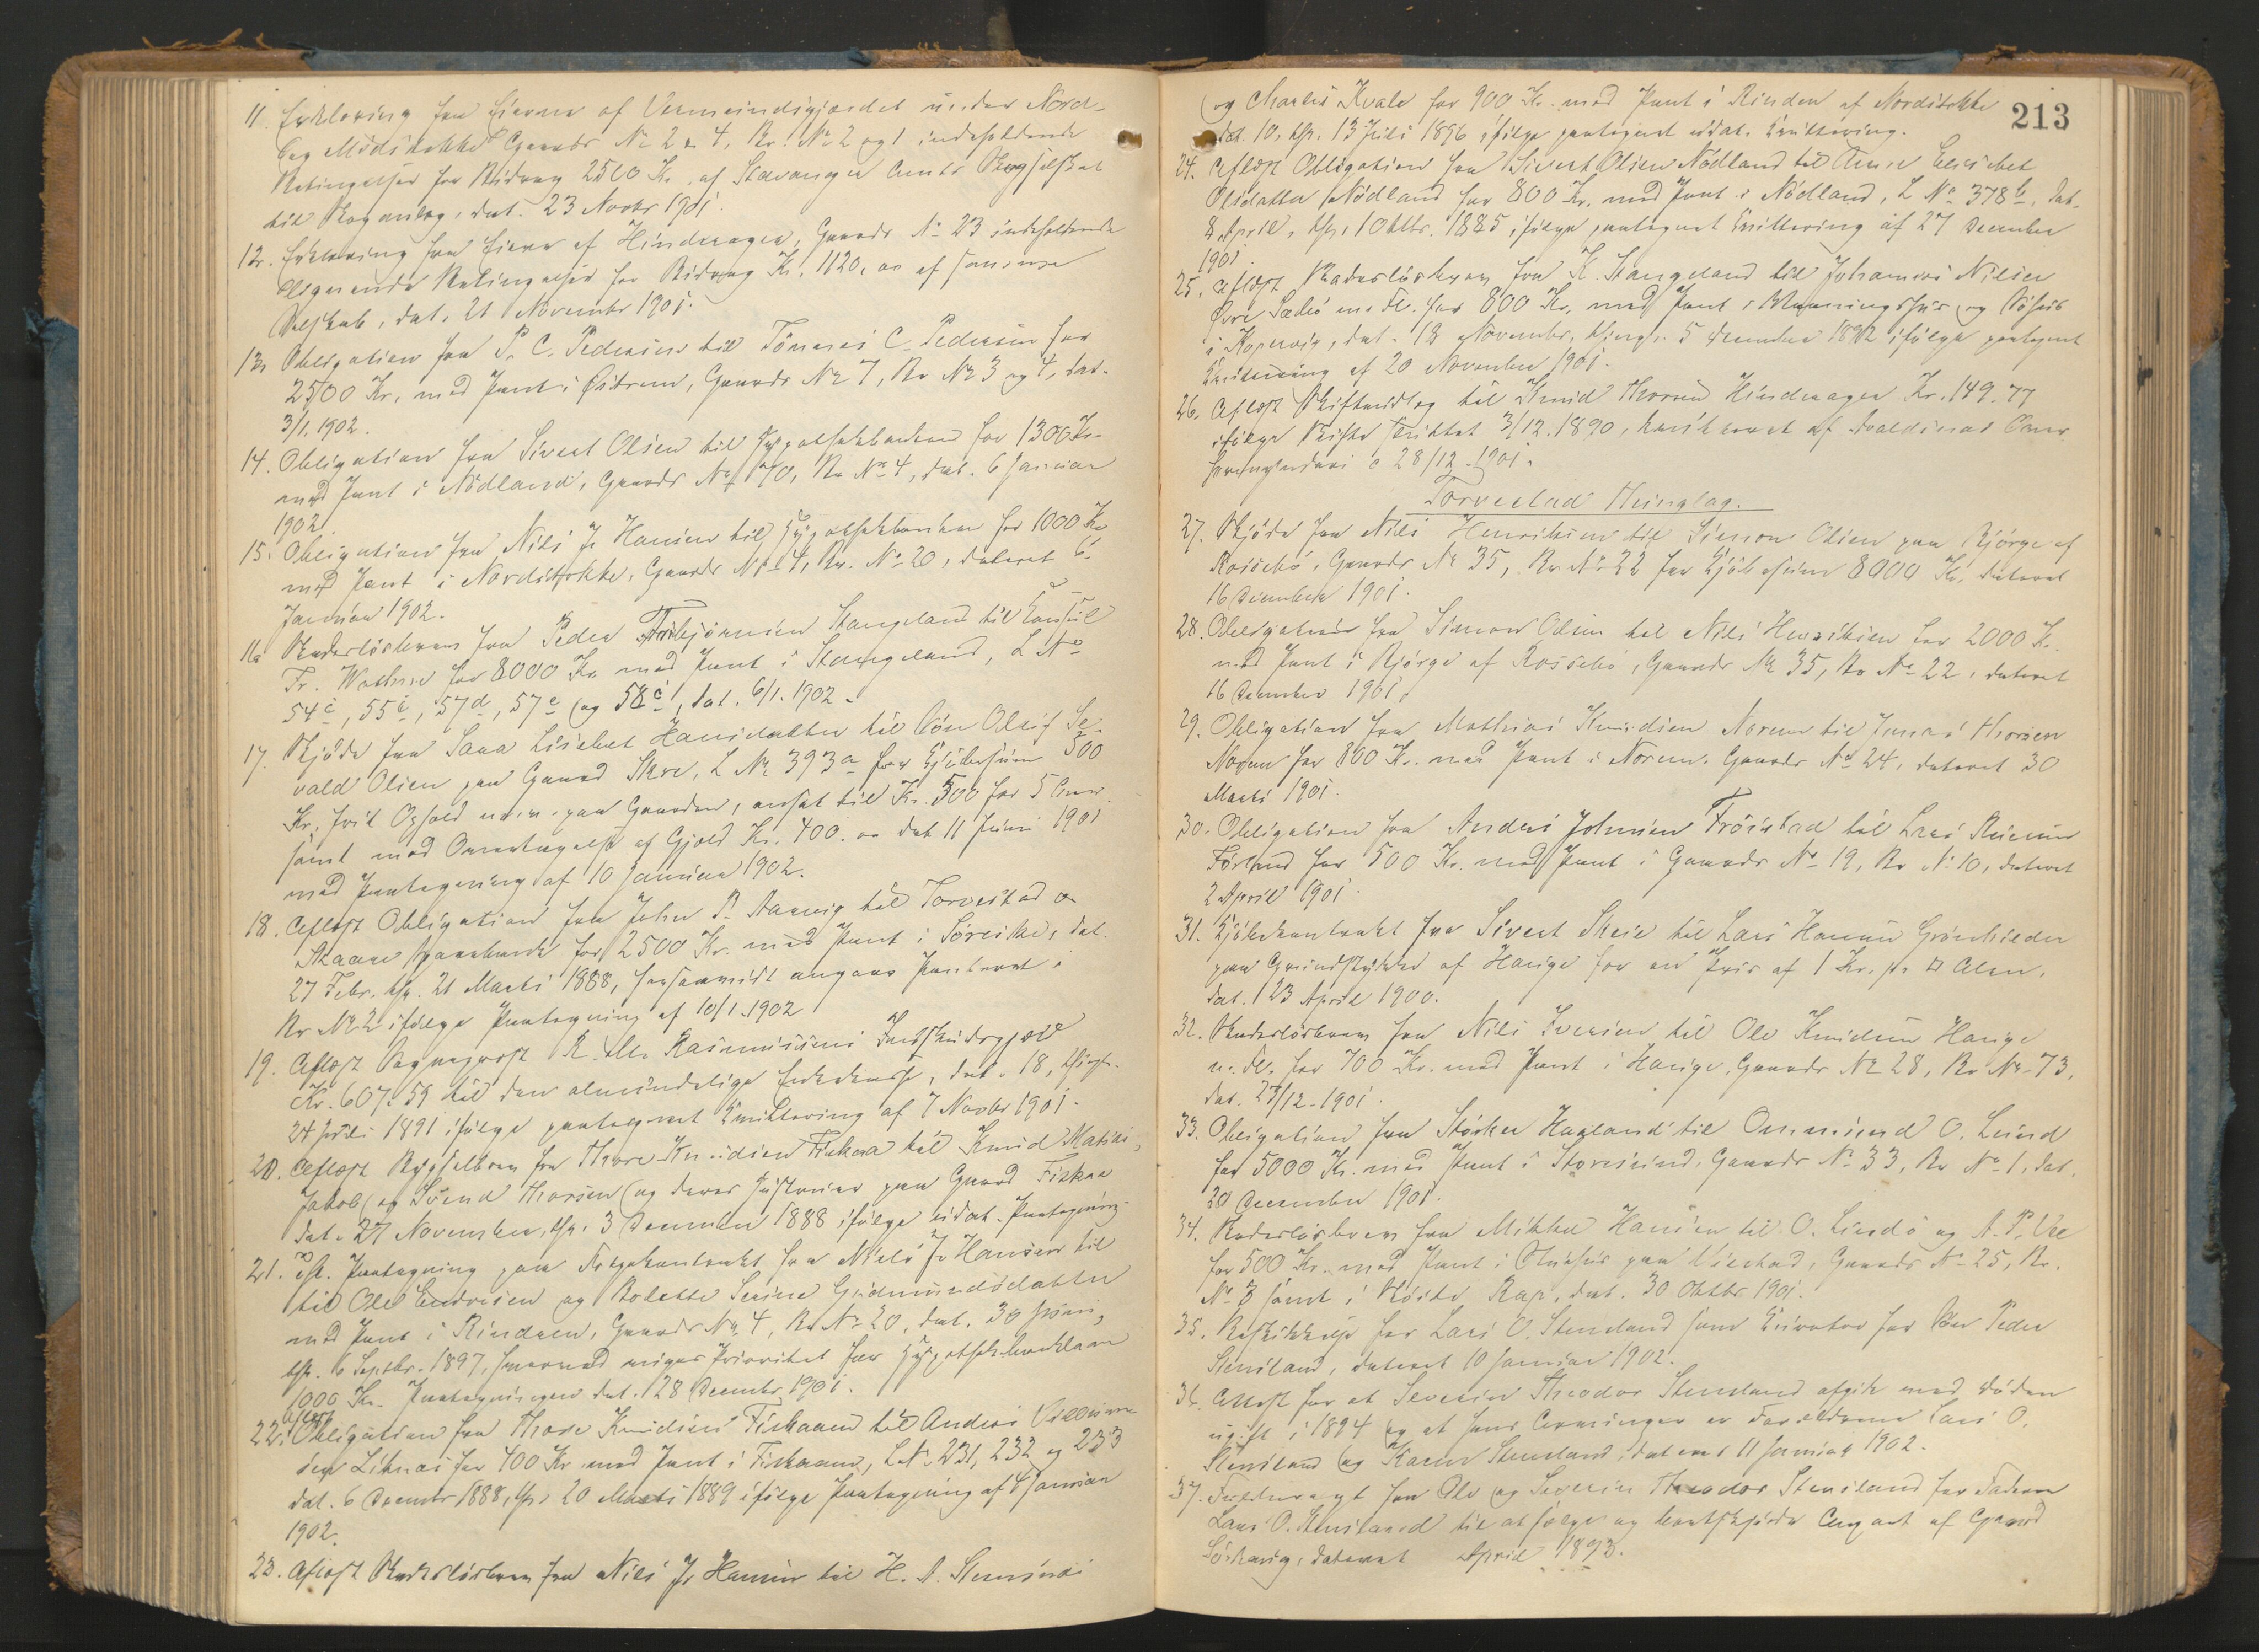 11. Erklæring fra Eierne af Vermeindsgjærdet under Nord-
og Midstokke Gaards No 2 & 4, Br. No 2 og 1 indeholdende
Betingelser for Bidrag 2500 Kr. af Stavanger Amts Skogselskab
til Skoganlæg, dat. 23 Novbr 1901.
12. Erklæring fra Eieren af Hindraager, Gaards No 23 indeholdende
lignende Betingelser for Bidrag Kr. 1120,00 af samme
Selskab, dat. 21 November 1901.
13. Obligation fra P. C. Pedersen til Tomas C. Pedersen for
2500 Kr. med Pant i Østrem, Gaards No 7, Br No 3 og 4, dat.
3/1. 1902.
14. Obligation fra Sivert Olsen til Hypothekbanken for 1300 Kr.
med Pant i Nødland, Gaards No 10, Br No 4, dat. 6 Januar
1902.
15. Obligation fra Nils J. Hansen til Hypothekbanken for 1000 Kr
med Pant i Nordstokke, Gaards No 4, Br. No 20, dateret 6
Januar 1902.
16 Skadesløsbrev fra Peder Torbjørnsen Stangeland til Konsul
Fr. Wathne for 8000 Kr. med Pant i Stangeland, L No
54c, 55c, 57d, 57e og 58c, dat. 6/1. 1902.
17. Skjøde fra Sara Lisebet Hansdatter til Søn Oluf Se-
vald Olsen paa Gaard Skre, L No 393a for Kjøbesum 500
Kr., frit Ophold m. m. paa Gaarden, ansat til Kr. 500 for 5 Aar
samt mod Overtagelse af Gjæld Kr. 400.00 dat 11 Juni 1901
med Paategning af 10 Januar 1902.
18. Aflæst Obligation fra John B. Aarvig til Torvestad og
Skaare Sparebank for 2500 Kr. med Pant i Søreike, dat.
27 Febr. thgl. 21 Marts 1888, forsaavidt angaar Panteret i
Br No 2 ifølge Paategning af 10/1. 1902
19. Aflæst R. M. Rasmussens Indskudsgjæld
Kr. 607.59 til den almindelige Enkekasse, dat. 18, thingl.
24 Juli 1891 ifølge paategnet Kvittering af 7 Novbr 1901.
20. Aflæst Bygselbrev fra Thore Knudsen Fiskaa til Knud Matias,
Jakob og Svend Thorsen og deres Hustruer paa Gaard Fiskaa
dat. 27 November, thgl. 3 December 1888 ifølge udat. Paategning.
21. Paategning paa Føderkontrakt fra Niels J. Hansen til
til Ole Endresen og Bolette Serine Gudmundsdatter
med Pant i Rindaen, Gaards No 4, Br No 20, dat. 30 Juni,
thgl. 6 Septbr. 1897, hvorved viges Prioritet for Hypothekbanklaan
1000 Kr. Paategningen dat. 28 December 1901.
22. Aflæst Obligation fra Thore Knudsen Fiskaaen til Anders Villum-
sen Liknes for 400 Kr. med Pant i Fiskaaen, L No 231, 232 og 233
dat. 6 Decembr 1888, thgl. 20 Marts 1889 ifølge Paategning af 4 Januar
1902.
23. Aflæst Skadesløsbrev fra Nils J. Hansen til H. A. Stensnes
213
og Charles Kvale for 900 Kr. med Pant i Rinden af Nordstokke
dat. 10, thgl. 13 Juli 1896 ifølge paategnet udat. Kvittering.
24. Aflæst Obligation fra Sivert Olsen Nødland til Anne Elisabet
Olsdatter Nødland for 800 Kr. med Pant i Nødland, L No 378b, dat.
8 April, thgl. 1 Oktbr. 1885 ifølge paategnet Kvittering af 27 December
1901.
25. Aflæst Skadesløsbrev fra K. Stangeland til Johannes Nilsen
Øvre Sæbø m. Fl. for 800 Kr. med Pant i Vaaningshus og Søhus
i Kopervig, dat. 18 November, thingl. 5 December 1892 ifølge paategnet
Kvittering af 20 November 1901.
26. Aflæst Skifteudlæg til Knud Thorsen Hindraager Kr. 149.77
ifølge Skifte sluttet 3/12. 1890, kvitteret af Avaldsnes Over-
formynderi d 28/12. 1901.
Torvestad Thinglag.
27. Skjøde fra Nils Henriksen til Simon Olsen paa Bjørge af
Rossebø, Gaards No 35, Br No 22 for Kjøbesum 8000 Kr. dateret
16 December 1901.
28. Obligation fra Simon Olsen til Nils Henriksen for 2000 Kr.
med Pant i Bjørge af Rossebø, Gaards No 35, Br No 22, dateret
16 December 1901.
29. Obligation fra Mathias Knudsen Norem til Jonas Thorsen
Norem for 800 Kr. med Pant i Norem, Gaards No 24, dateret 30
Marts 1901.
30. Obligation fra Anders Johnsen Frøistad til Lars
Førland for 500 Kr. med Pant i Gaards No 19, Br No 10, dateret
2 April 1901.
31. Kjøbekontrakt fra Sivert Skeie til Lars Hansen Grønhilder
paa Grundstykke af Hauge for en Pris af 1 Kr. pr. □ Alen,
dat. 23 April 1900.
32. Skadesløsbrev fra Nils Iversen til Ole Knudsen Hauge
m. Fl. for 700 Kr. med Pant i Hauge, Gaards No 28, Br No 73,
dat. 27/12. 1901.
33. Obligation fra Størker Hagland til Ommund O. Lund
for 5000 Kr. med Pant i Storesund, Gaards No 33, Br No 1, dat.
20 December 1901.
34. Skadesløsbrev fra Mikkel Hansen til O. Liendø og A. P. Vee
for 500 Kr. med Pant i Stuehus paa Vikstad, Gaards No 25, Br.
No 3 samt i Skøite Rap, dat. 30 Oktbr 1901.
35. Beskikkelse for Lars O. Stensland som Kurator for Søn Peder
Stensland, dateret 10 Januar 1902.
36. Attest for at Severin Theodor Stensland afgik ved Døden
ugift i 1894 og at hans Arvinger er Forældrene Lars O.
Stensland og Karen Stensland, dateret 11 Januar 1902.
37. Fuldmagt fra Ole og Severin Theodor Stensland for Faderen
Lars O. Stensland til at sælge og bortskjøde Anpart af Gaard
Sørhaug, dateret April 1893.